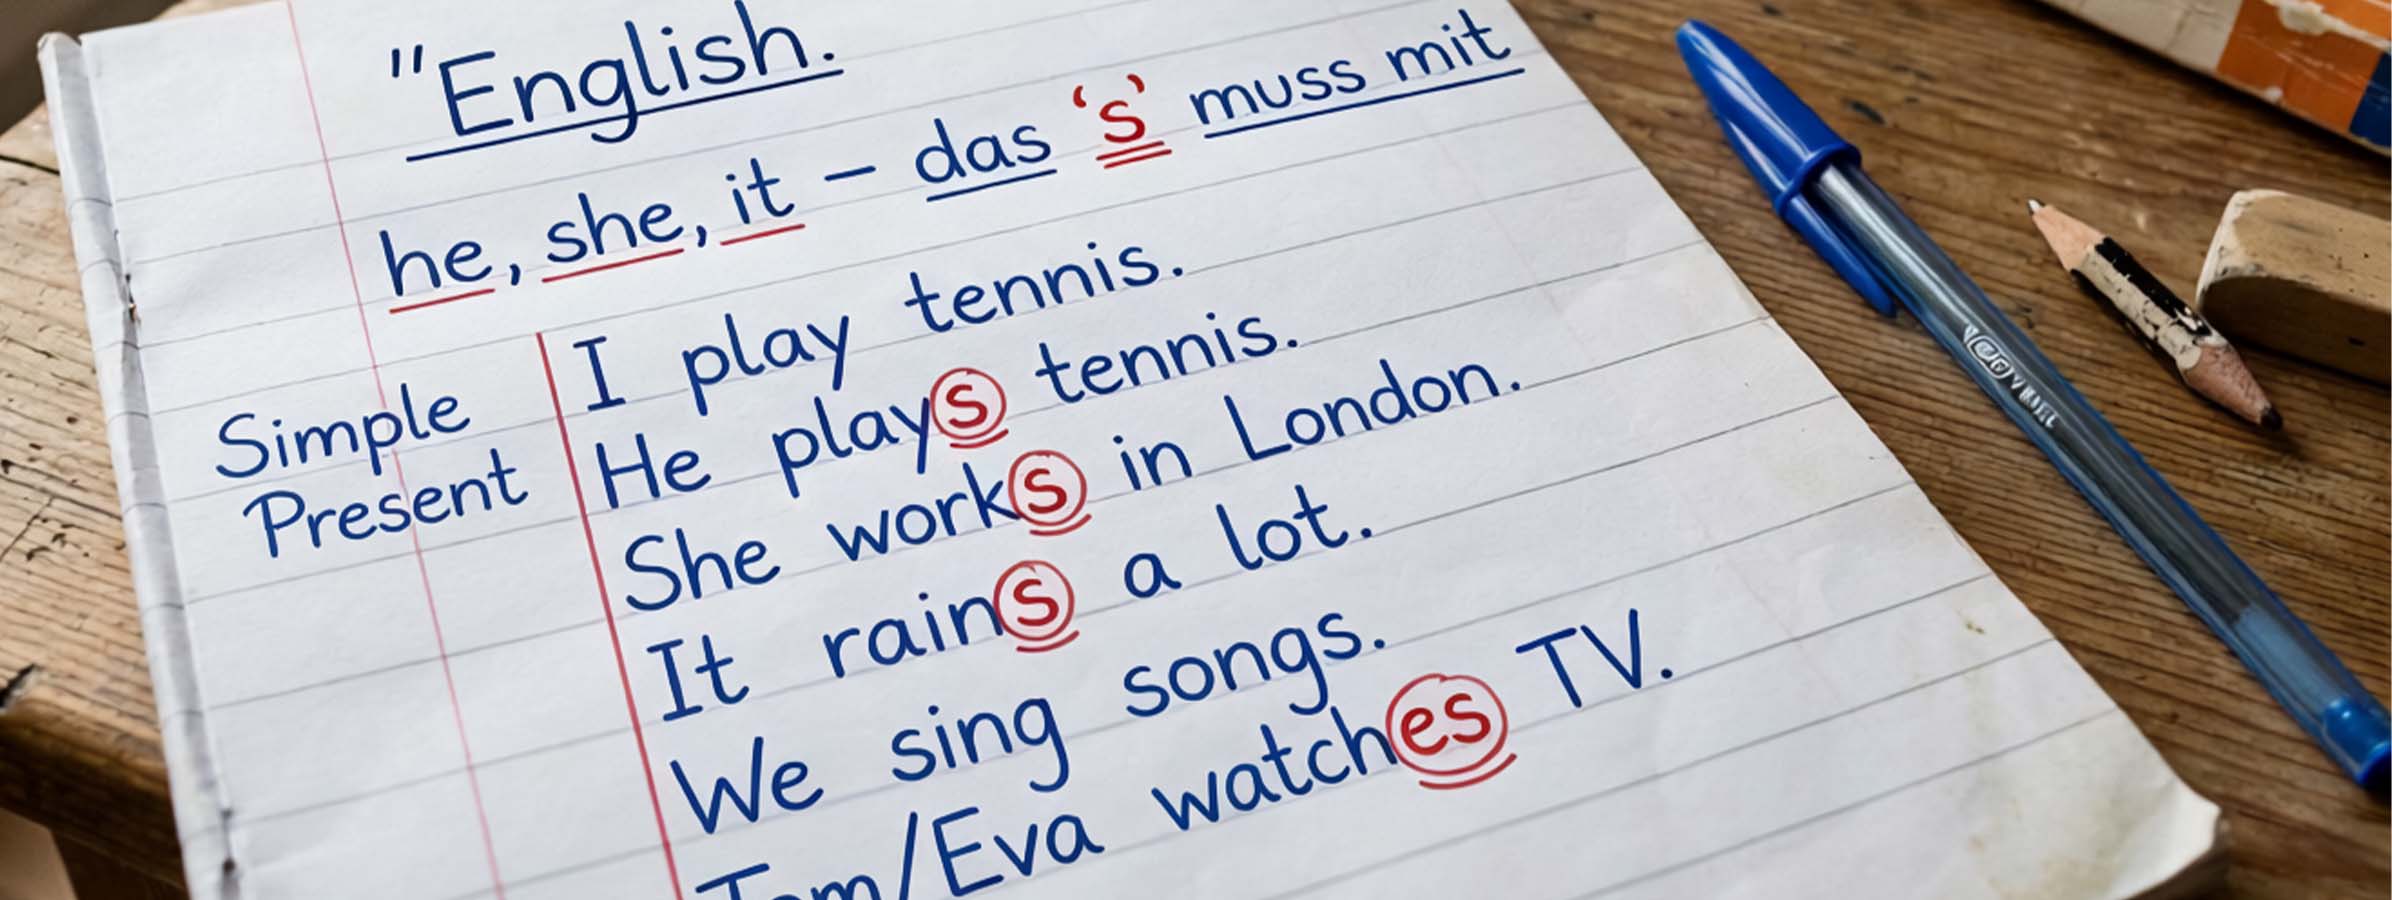 "English.
he, she, it – das 's' muss mit
Simple Present
I play tennis.
He plays tennis.
She works in London.
It rains a lot.
We sing songs.
Tom/Eva watches TV.